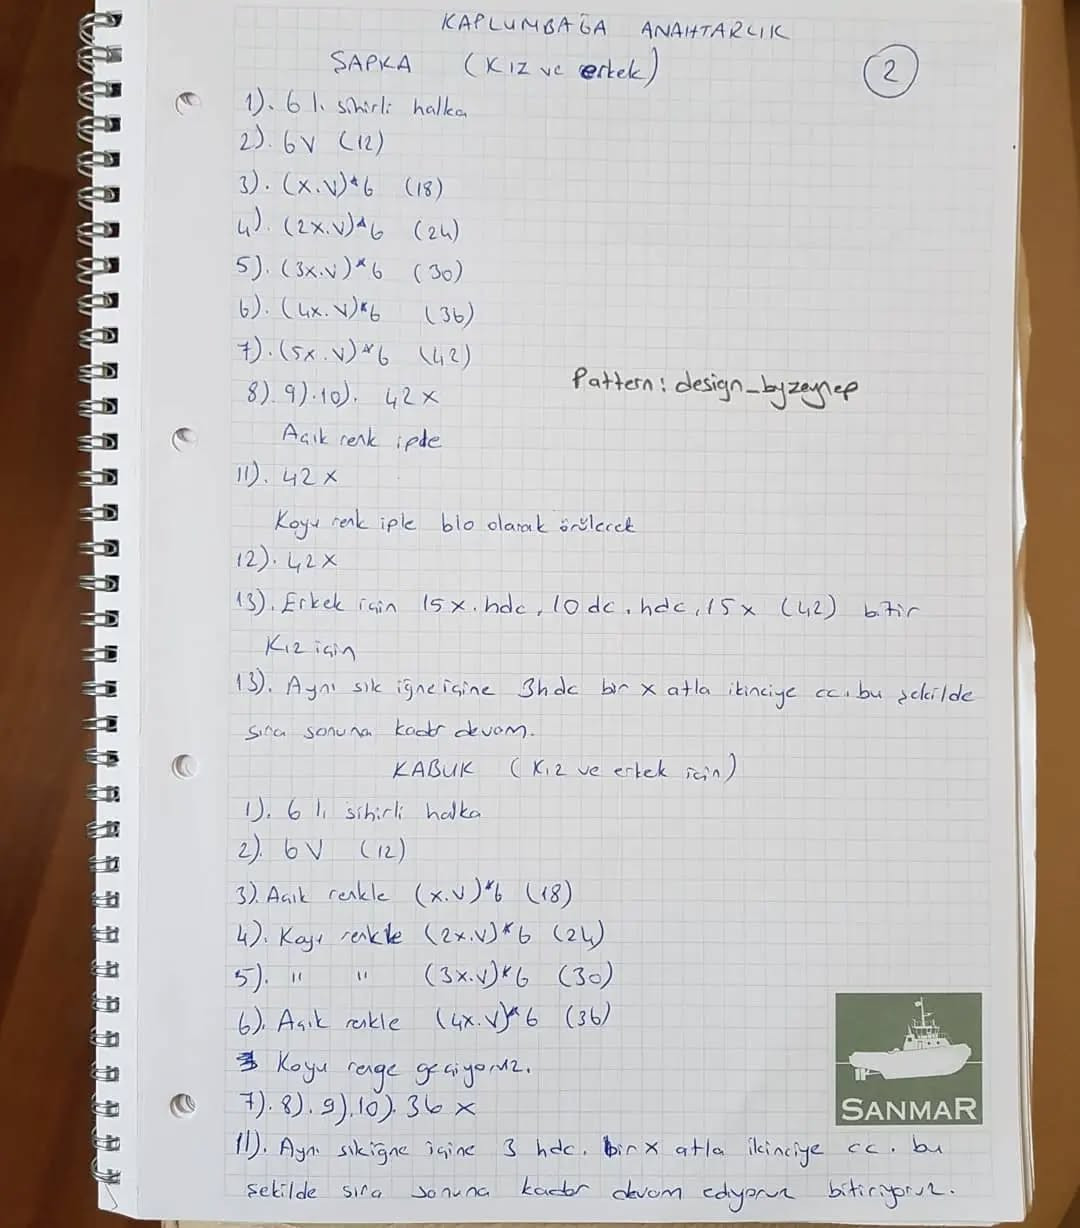 KAPLUMBAĞA ANAHTARLIK
ŞAPKA (KIZ ve erkek)
2
1). 6 lı sihirli halka
2). 6V (12)
3). (x.v)*6 (18)
4). (2x.v)*6 (24)
5). (3x.v)*6 (30)
6). (4x.v)*6 (36)
7). (5x.v)*6 (42)
8). 9).10). 42x
Pattern: design_byzeynep
Açık renk ipde
11). 42x
Koyu renk iple blo olarak örülecek
12). 42x
13). Erkek için 15x.hdc, 10dc.hdc,15x (42) bitir
Kız için
13). Aynı sık iğne içine 3hdc bir x atla ikinciye cc. bu şekilde
sıra sonuna kadar devam.
KABUK (Kız ve erkek için)
1). 6 lı sihirli halka
2). 6V (12)
3). Açık renkle (x.v)*6 (18)
4). Koyu renkle (2x.v)*6 (24)
5). " " (3x.v)*6 (30)
6). Açık renkle (4x.v)*6 (36)
Koyu renge geçiyoruz.
7). 8). 9).10). 36x
11). Aynı sıkiğne içine 3 hdc. bir x atla ikinciye cc. bu
şekilde sıra sonuna kadar devam ediyoruz bitiriyoruz.
SANMAR